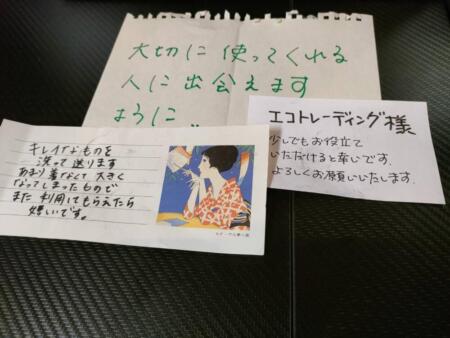 大切に使ってくれる
人に出会えます
ように..
エコトレーディング様
少しでもお役立て
いただけると幸いです。
よろしくお願いいたします。
キレイなものを
洗って送ります
あまり着なくて大きく
なってしまったもので
また利用してもらえたら
嬉しいです。